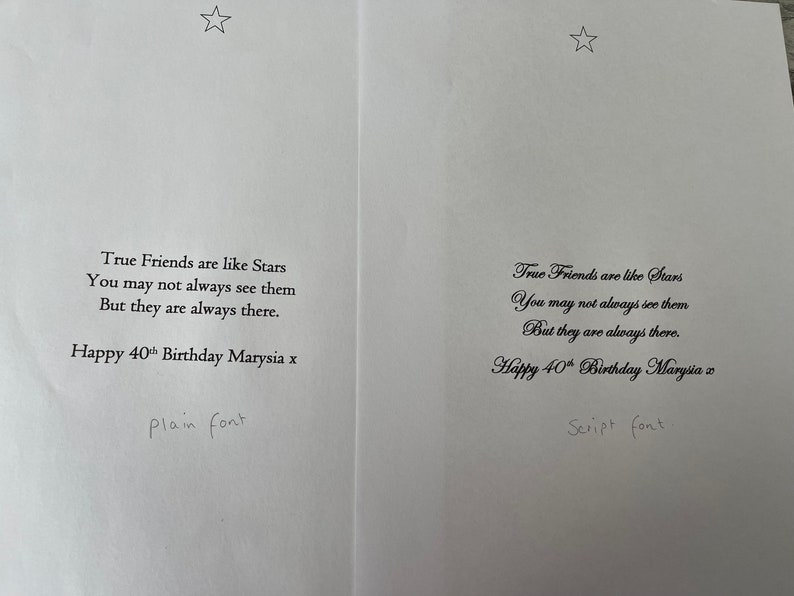 True Friends are like Stars
You may not always see them
But they are always there.
Happy 40th Birthday Marysia x
plain font
True Friends are like Stars
You may not always see them
But they are always there.
Happy 40th Birthday Marysia x
Script font.